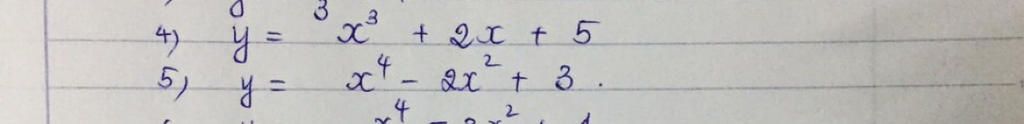 4) y = x³ + 2x + 5
5) y = x⁴ - 2x² + 3.